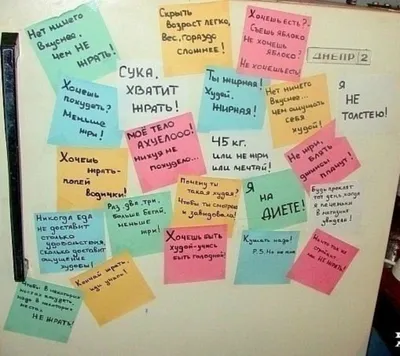 Нет ничего
вкуснее,
чем НЕ
ЖРАТЬ!
Скрыть
возраст легко,
Вес, гораздо
сложнее!
Хочешь есть?
Съешь яблоко.
Не хочешь
яблоко?
Не хочешь есть!
ДНЕПР 2
Хочешь
похудеть?
Меньше
жри!
СУКА,
ХВАТИТ
ЖРАТЬ!
Ты жирная!
Худей,
ЖИРНАЯ!
Нет ничего
вкуснее,
чем ощущать
себя
худой!
Я
НЕ
ТОЛСТЕЮ!
МОЁ ТЕЛО
АХУЕЛООО:
нихуя не
похудело...
45 кг.
или не жри
или мечтай!
Не жри,
блять
джинсы
плачут!
Хочешь
жрать -
попей
водички!
Почему ты
такая худая?
Чтобы ты смотрела
и завидовала!
Я
на
ДИЕТЕ!
Будь проклят
тот день, когда
я
Никогда еда
не доставит
столько
удовольствия,
сколько доставит
ощущение
худобы!
Раз, два, три,
больше бегай,
меньше
жри!
Хочешь быть
худой - учись
быть голодной!
Кушать надо!
P.S. Но не мне
НЕ ЖРАТЬ!
Чтобы в некоторых
местах похудеть,
надо в некоторых
местах
НЕ ЖРАТЬ!
Кончай жрать,
иди учись!